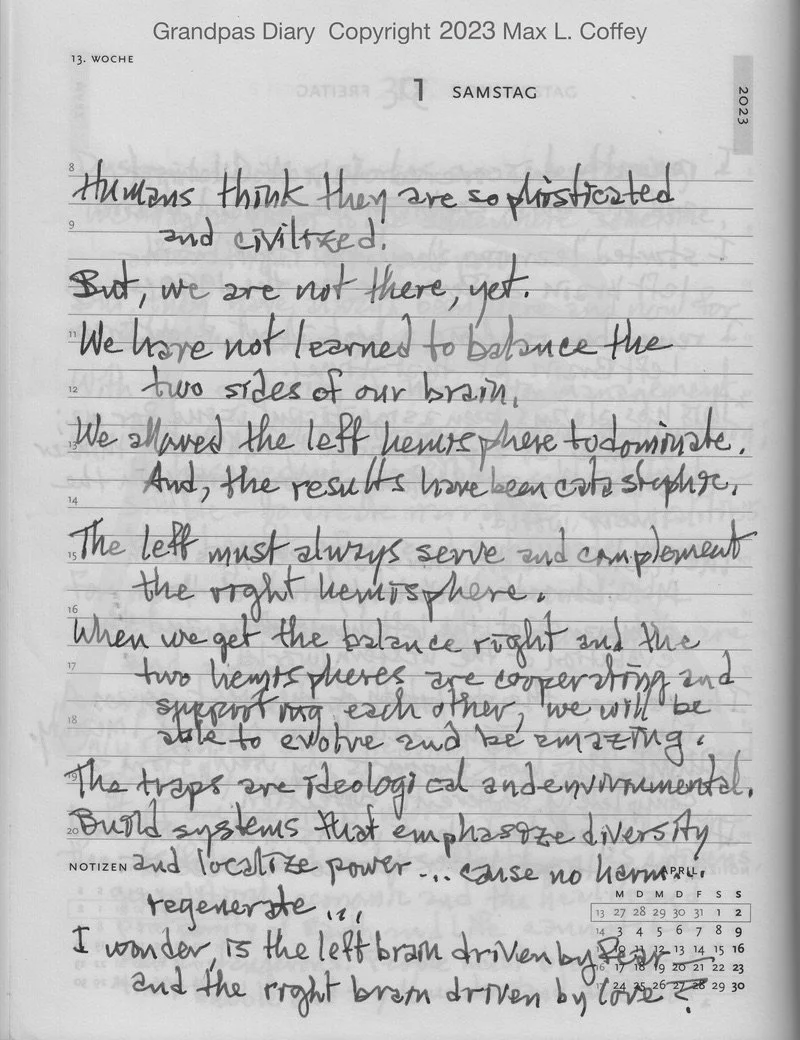 Grandpas Diary Copyright 2023 Max L. Coffey
13. WOCHE
1 SAMSTAG
2023
8
Humans think they are sophisticated
9
and civilized.
But, we are not there, yet.
11
We have not learned to balance the
12
two sides of our brain.
13
We allowed the left hemisphere to dominate.
And, the results have been catastrophic.
14
15
The left must always serve and complement
the right hemisphere.
16
When we get the balance right and the
17
two hemispheres are cooperating and
supporting each other, we will be
18
able to evolve and be amazing.
19
The traps are ideological and environmental.
20
Build systems that emphasize diversity
NOTIZEN
and localize power... cause no harm...
APRIL
M D M D F S S
regenerate...
13 27 28 29 30 31 1 2
14 3 4 5 6 7 8 9
I wonder, is the left brain driven by fear
11 12 13 14 15 16
17 18 19 20 21 22 23
and the right brain driven by love?
24 25 26 27 28 29 30